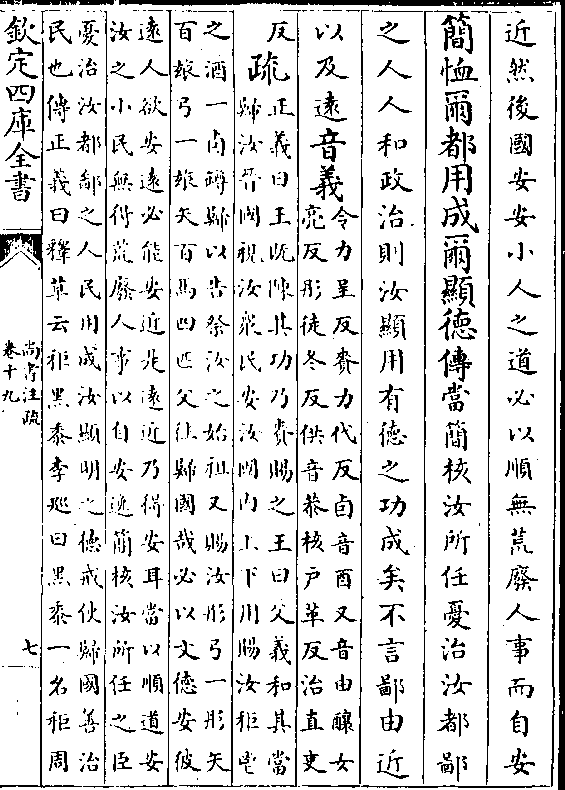 近然後國安安小人之道必以順無荒廢人事而自安
簡恤爾都用成爾顯德傳當簡核汝所任憂治汝都鄙
之人人和政治則汝顯用有德之功成矣不言鄙由近
以及遠音義令力呈反賚力代反卣音酉又音由釀女
亮反彤徒冬反供音恭核戶革反治直吏
反疏正義曰王既陳其功乃賚賜之王曰父義和其當
歸汝晉國視汝衆民安汝國内上下用賜汝秬鬯
之酒一卣罇歸以告祭汝之始祖又賜汝彤弓一彤矢
百玈弓一玈矢百馬四匹父往歸國哉必以文德安彼
遠人欲安遠必能安近然遠近乃得安耳當以順道安
汝之小民無得荒廢人事以自安逸簡核汝所任之臣
憂治汝都鄙之人民用成汝顯明之德戒使歸國善治
民也傳正義曰釋草云秬黑黍李廵曰黑黍一名秬周
欽定四庫全書
尚書注疏
卷十九
七